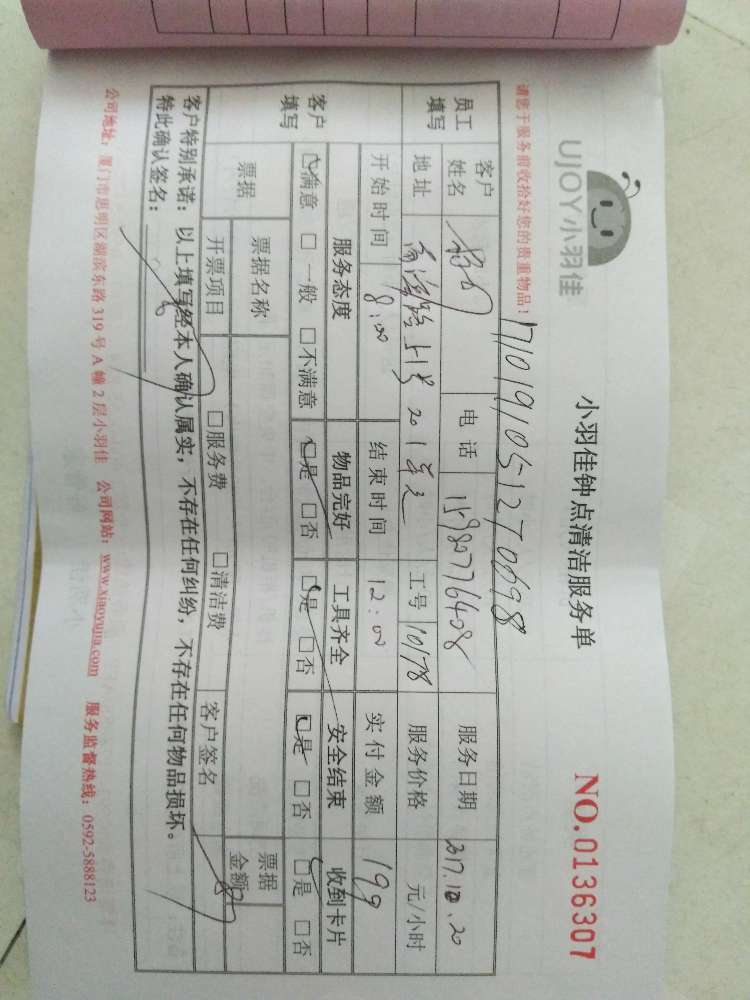 UJOY小羽佳
小羽佳钟点清洁服务单
NO.0136307
请您于服务前收拾好您的贵重物品!
1710191051270698
员工填写
客户姓名
电话 15980776408
服务日期 2017.10.20
地址 51号201单元
工号 10178
服务价格 元/小时
开始时间 8:00
结束时间 12:00
实付金额 199
客户填写
服务态度 物品完好 工具齐全 安全结束 收到卡片
□满意 □一般 □不满意 □是 □否 □是 □否 □是 □否 □是 □否
票据
票据名称
票据金额
开票项目 □服务费 □清洁费 客户签名
客户特别承诺:以上填写经本人确认属实,不存在任何纠纷,不存在任何物品损坏。
特此确认签名:
公司地址:厦门市思明区湖滨东路319号A幢2层小羽佳 公司网站:www.xiaoyujia.com 服务监督热线:0592-5888123